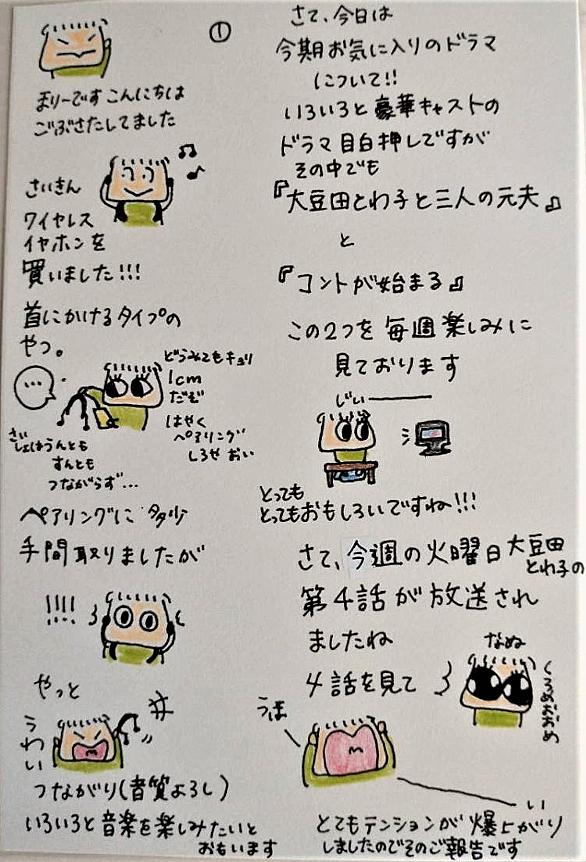 ①
まりーです こんにちは
ごぶさたしてました
さいきん
ワイヤレス
イヤホンを
買いました!!!
首にかけるタイプの
やつ。
…
どうみてもキョリ
1cm
だぞ
はやく
ペアリング
しろぜ おい
さいしょはうんとも
すんとも
つながらず…
ペアリングに多少
手間取りましたが
!!!!
やっと
うわい
つながり(音質よろし)
いろいろと音楽を楽しみたいと
おもいます
さて、今日は
今期お気に入りのドラマ
について!!
いろいろと豪華キャストの
ドラマ目白押しですが
その中でも
『大豆田とわ子と三人の元夫』
と
『コントが始まる』
この2つを毎週楽しみに
見ております
じぃー
とっても
とってもおもしろいですね!!!
さて、今週の火曜日大豆田
とわ子の
第4話が放送され
ましたね
4話を見て
なぬ
くろめおおめ
うほ
い
とてもテンションが爆上がり
しましたのでそのご報告です